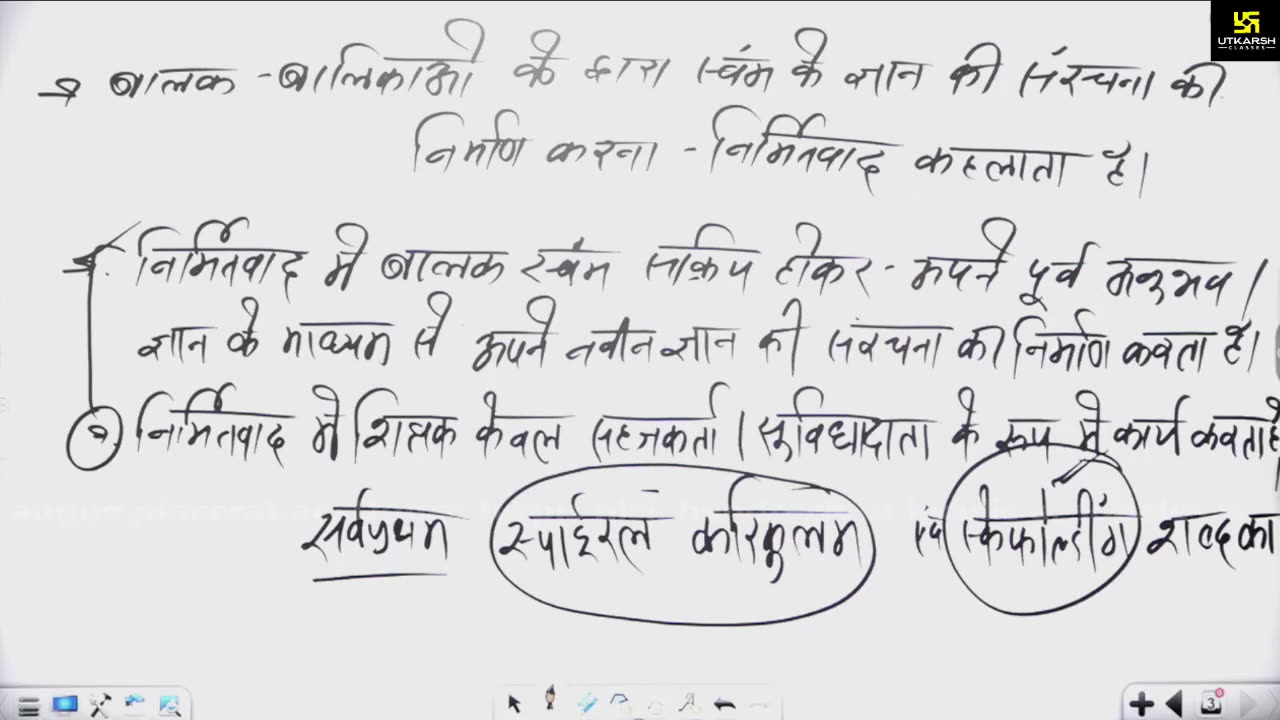 UTKARSH
CLASSES
→ बालक - बालिकाओं के द्वारा स्वंम के ज्ञान की संरचना की
निर्माण करना - निर्मितवाद कहलाता है।
निर्मितवाद में बालक स्वंम सक्रिय होकर - अपने पूर्व अनुभव /
ज्ञान के माध्यम से अपने नवीन ज्ञान की संरचना का निर्माण करता है।
निर्मितवाद में शिक्षक केवल सहजकर्ता / सुविधादाता के रूप में कार्य करता है
सर्वप्रथम स्पाईरल करिकुलम एवं स्केफोल्डींग शब्द का
3